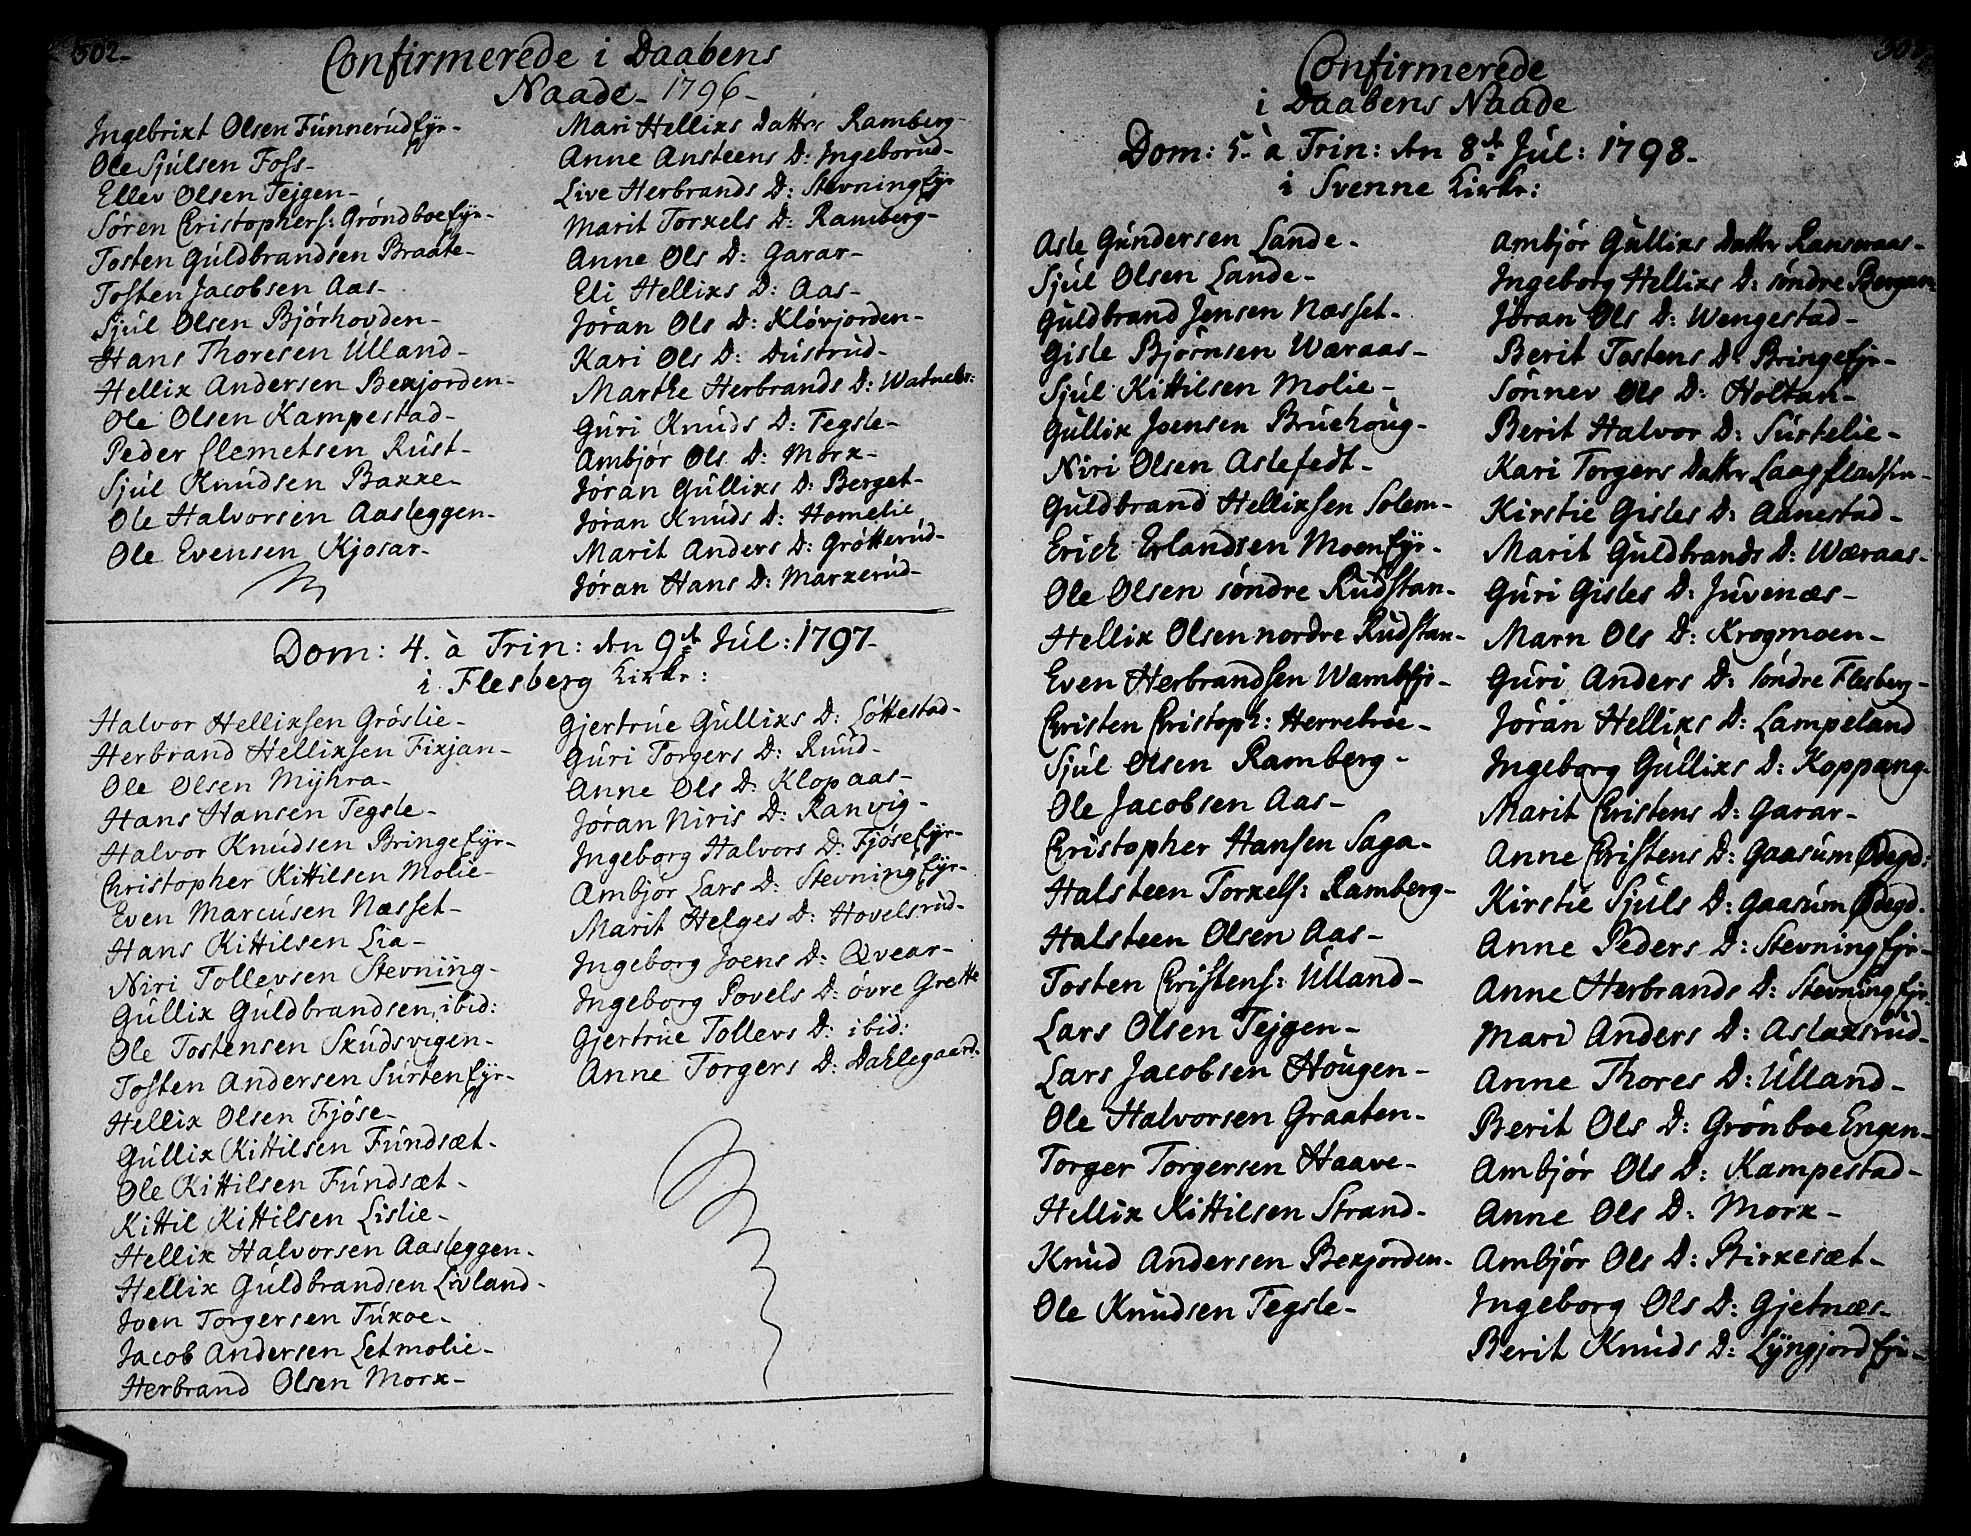 302.
Confirmerede i Daabens
Naade - 1796 -
Ingebrixt Olsen Funnerud Eyr -
Ole Sjulsen Foss -
Ellev Olsen Tejgen -
Søren Christophers: Grøndboe Eyr -
Tosten Guldbrandsen Braate -
Tosten Jacobsen Aas -
Sjul Olsen Bjørhovden -
Hans Thoresen Ulland -
Hellix Andersen Bexjorden -
Ole Olsen Kampestad -
Peder Clemetsen Rust -
Sjul Knudsen Baxxe -
Ole Halvorsen Aasleggen -
Ole Evensen Kjosar -
Mari Hellixs Datter Ramberg -
Anne Ansteens D: Ingeborud -
Live Herbrands D: Stevning Eyr
Marit Torxels D: Ramberg -
Anne Ols D: Garar -
Eli Hellixs D: Aas -
Jøran Ols D: Kløvjorden -
Kari Ols D: Dustrud -
Marthe Herbrands D: Watnebr:
Guri Knuds D: Tegsle -
Ambjør Ols D: Morx -
Jøran Gullixs D: Berget -
Jøran Knuds D: Homelie
Marit Anders D: Grøtterud -
Jøran Hans D: Marxerud -
Dom: 4. à Trin: den 9de Jul: 1797 -
i Flesberg Kirke:
Halvor Hellixsen Grøslie -
Herbrand Hellixsen Fixjan -
Ole Olsen Mÿhra -
Hans Hansen Tegsle -
Halvor Knudsen Bringe Eyr -
Christopher Kittilsen Molie -
Even Marcusen Næsset -
Hans Kittilsen Lia -
Niri Tollevsen Stevning -
Gullix Guldbrandsen, ibid:
Ole Tostensen Skudsvigen -
Tosten Andersen Surten Eyr -
Hellix Olsen Fjøse -
Gullix Kittilsen Fundsæt -
Ole Kittilsen Fundsæt -
Kittil Kittilsen Lislie -
Hellix Halvorsen Aasleggen -
Hellix Guldbrandsen Livland -
Joen Torgersen Tuxoe -
Jacob Andersen Letmolie -
Herbrand Olsen Morx -
Gjertrue Gullixs D: Løttestad -
Guri Torgers D: Ruud -
Anne Ols D: Klopaas -
Jøran Niris D: Ranvig -
Ingeborg Halvors D: Fjøse Eyr -
Ambjør Lars D: Stevning Eyr -
Marit Helges D: Hovelsrud -
Ingeborg Joens D: Qvear -
Ingeborg Povels D: øvre Grette
Gjertrue Tollevs D: ibid:
Anne Torgers D: Dahlegaard.
Confirmerede
i Daabens Naade
Dom: 5. à Trin: den 8de Jul: 1798 -
i Svenne Kirke:
Asle Gundersen Lande -
Sjul Olsen Lande -
Guldbrand Jensen Næsset -
Gisle Bjørnsen Wæraas -
Sjul Kittilsen Molie -
Gullix Joensen Bruehoug -
Niri Olsen Aslefedt -
Guldbrand Hellixsen Solem -
Erich Erlandsen Moen Eyr -
Ole Olsen søndre Rudstan -
Hellix Olsen nordre Rudstan -
Even Herbrandsen Wamb Eyr -
Christen Christoph: Herrebroe -
Sjul Olsen Ramberg -
Ole Jacobsen Aas -
Christopher Hansen Saga -
Halsteen Torxels: Ramberg -
Halsteen Olsen Aas -
Tosten Christens: Ulland -
Lars Olsen Tejgen -
Lars Jacobsen Hougen -
Ole Halvorsen Graaten -
Torger Torgersen Haave -
Hellix Kittilsen Strand -
Knud Andersen Bexjorden -
Ole Knudsen Tegsle -
Ambjør Gullixs Datter Ransaraas -
Ingeborg Hellixs D: søndre Bergan
Jøran Ols D: Wengestad -
Berit Tostens D: Bringe Eyr -
Sønnev Ols D: Holtan -
Berit Halvor D: Surtelie -
Kari Torgers Datter Laagfladsen -
Kirstie Gisles D: Aanestad -
Marit Guldbrands D: Wæraas -
Guri Gisles D: Juvenæs -
Marn Ols D: Krogmoen -
Guri Anders D: søndre Flesberg -
Jøran Hellixs D: Lampeland
Ingeborg Gullixs D: Koppang -
Marit Christens D: Garar -
Anne Christens D: Gaasum Ødegd:
Kirstie Sjuls D: Gaasum Ødegd.
Anne Peders D: Stevning Eyr -
Anne Herbrands D: Stevning Eyr -
Mari Anders D: Aslaxsrud -
Anne Thores D: Ulland -
Berit Ols D: Grønboe Engen -
Ambjør Ols D: Kampestad -
Anne Ols D: Morx -
Ambjør Ols D: Birxesæt -
Ingeborg Ols D: Gjetnæs -
Berit Knuds D: Lÿngjord Eyr -